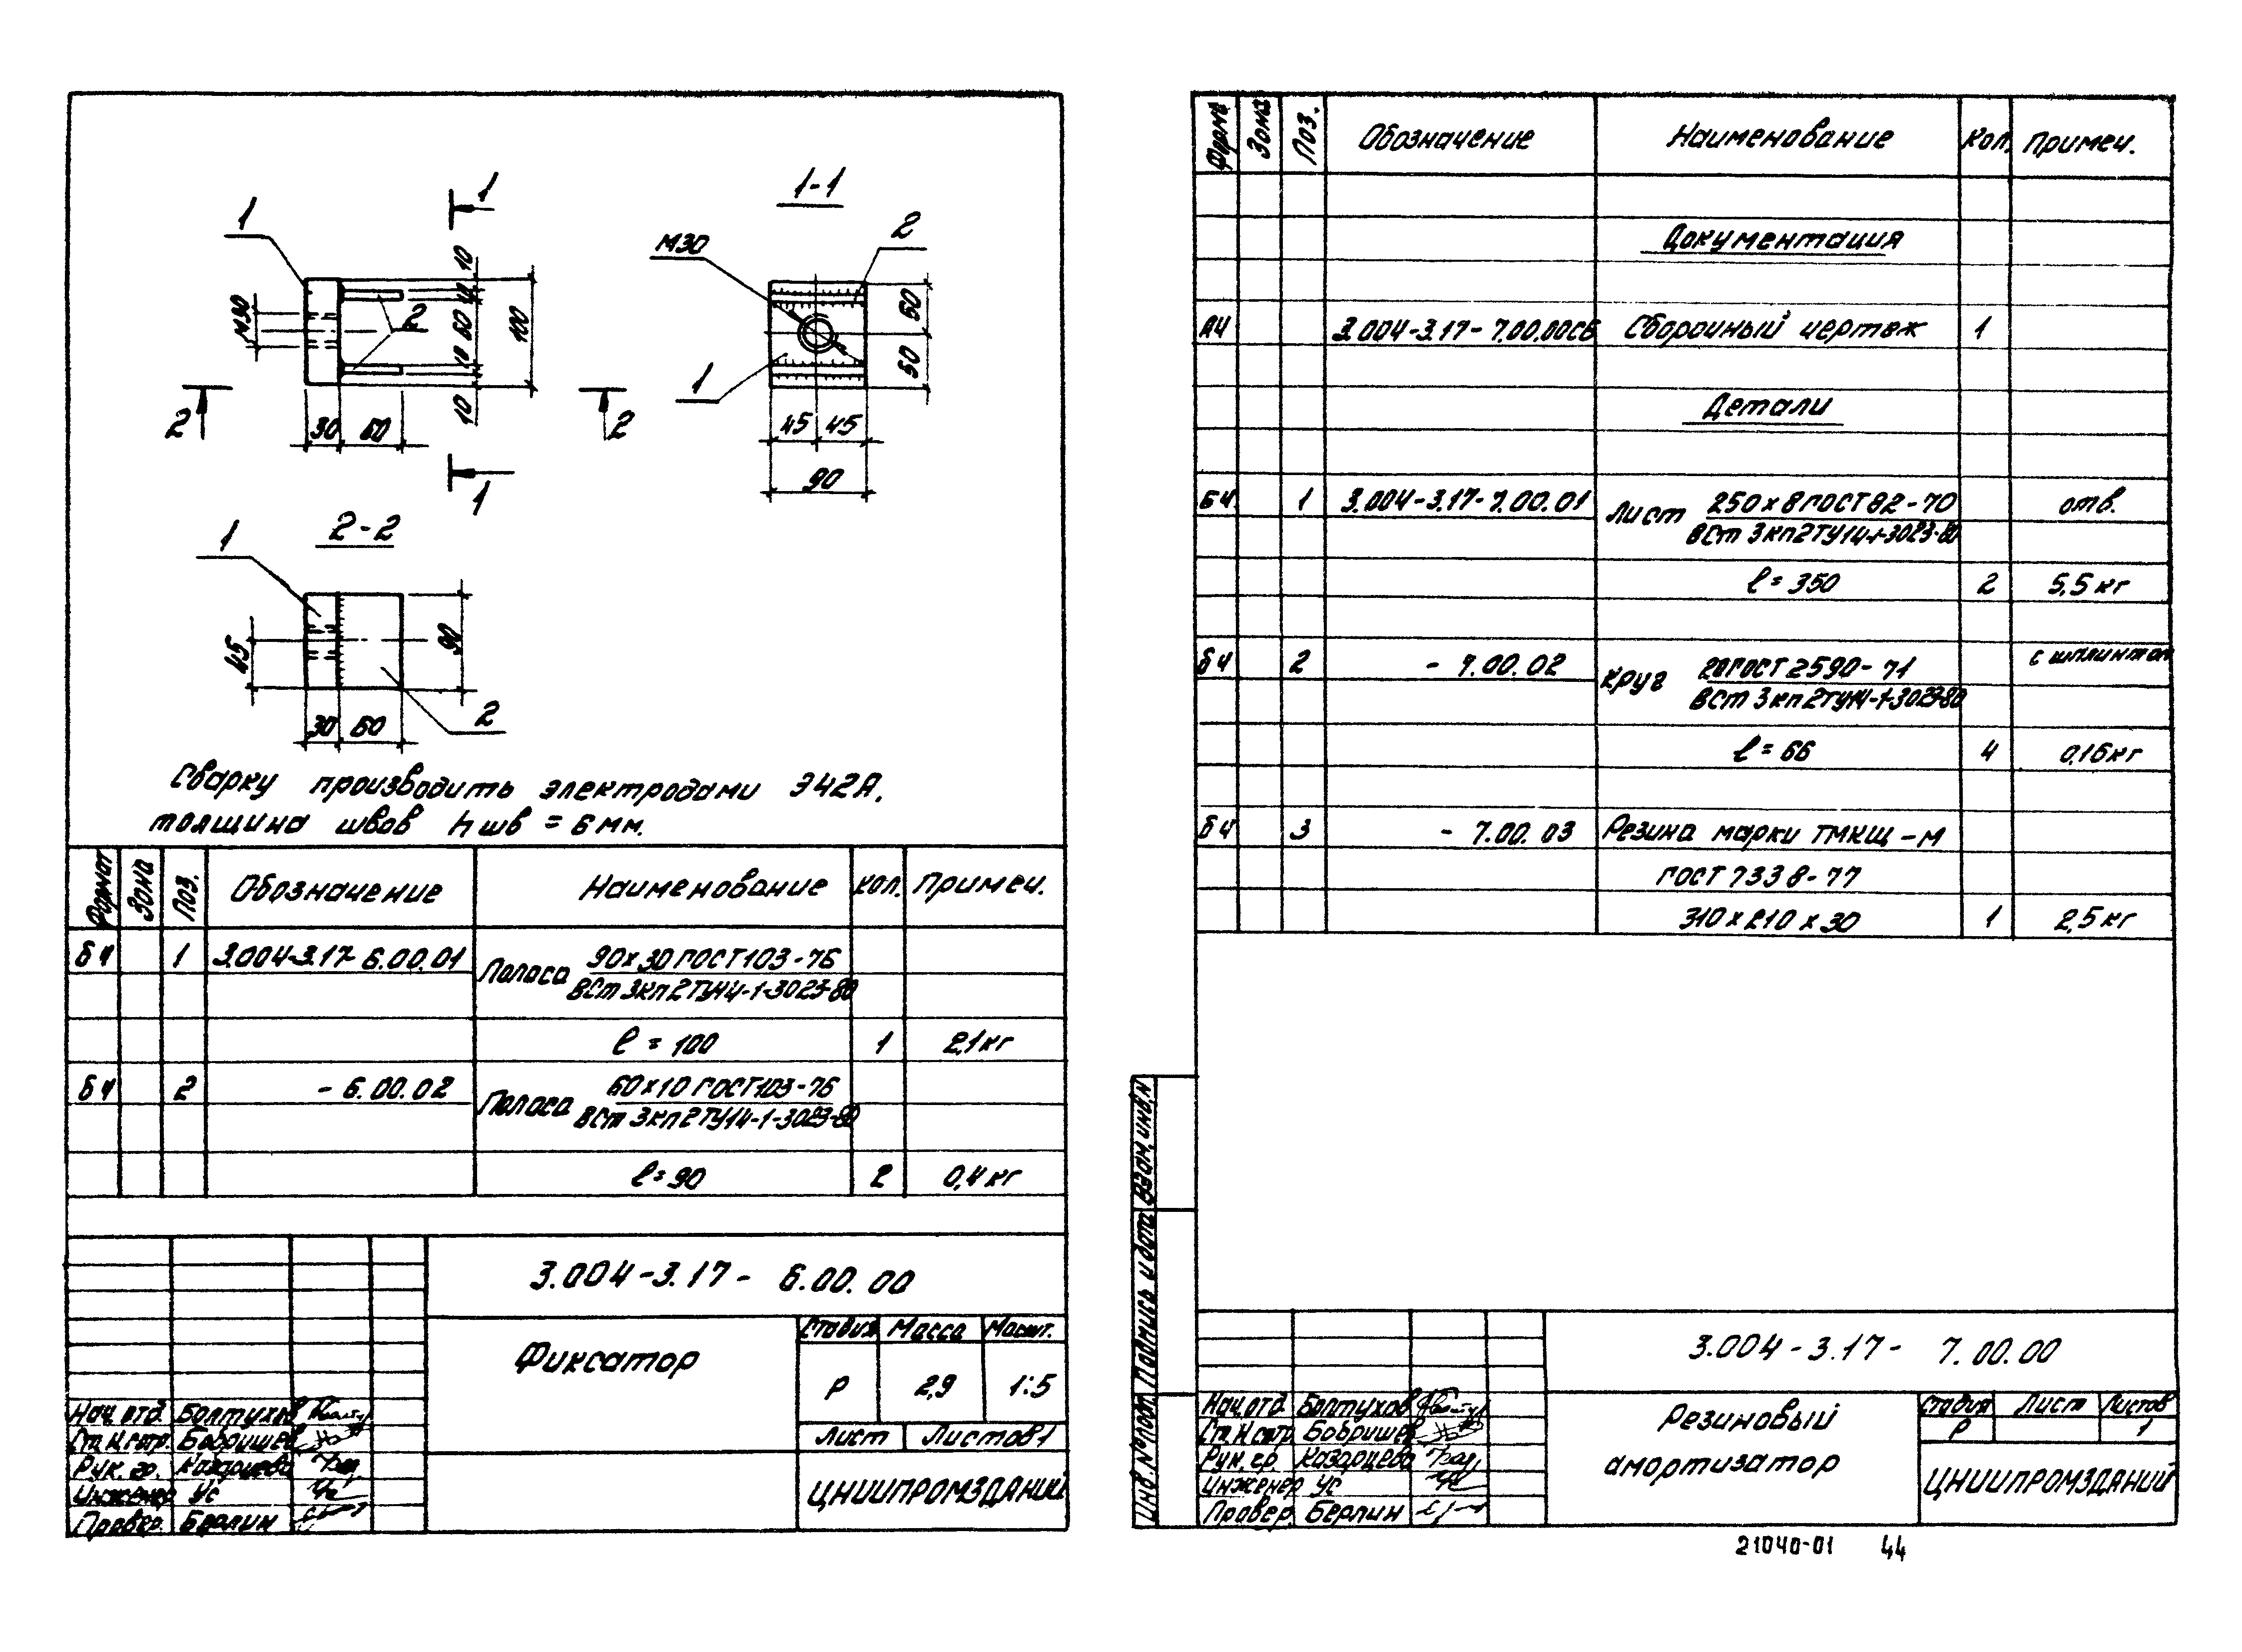 1
1
1-1
2
М30
М30
2
10
10
60
10
10
100
50
50
1
2
2
30 60
45 45
90
1
1
2-2
45
90
30 60
2
Сварку производить электродами Э42А,
толщина швов h шв = 6 мм.
Формат Зона Поз. Обозначение Наименование Кол. Примеч.
БЧ 1 3.004-3.17-6.00.01 Полоса 90х30 ГОСТ103-76
ВСт 3кп2ТУ14-1-3023-80
ℓ = 100 1 2,1кг
БЧ 2 -6.00.02 Полоса 60х10 ГОСТ103-76
ВСт 3кп2ТУ14-1-3023-80
ℓ=90 2 0,4кг
3.004-3.17- 6.00.00
Фиксатор
Стадия Масса Масшт.
Р 2,9 1:5
Лист Листов 1
ЦНИИПРОМЗДАНИЙ
Нач. отд. Болтухов
Ст. н. сотр. Бобришев
Рук. гр. Казарцева
Инженер Ус
Провер. Берлин
Форма Зона Поз. Обозначение Наименование Кол. Примеч.
Документация
А4 3.004-3.17-7.00.00СБ Сборочный чертеж 1
Детали
БЧ 1 3.004-3.17-7.00.01 Лист 250х8 ГОСТ82-70 отв.
ВСт 3кп2ТУ14-1-3023-80
ℓ= 350 2 5,5кг
БЧ 2 -7.00.02 Круг 20ГОСТ2590-71 с шплинтом
ВСт 3кп2ТУ14-1-3023-80
ℓ=66 4 0,16кг
БЧ 3 -7.00.03 Резина марки ТМКЩ-М
ГОСТ 7338-77
310х210х30 1 2,5кг
Взам. инв. N
Подпись и дата
Инв. № подл.
3.004-3.17- 7.00.00
Резиновый
амортизатор
Стадия Лист Листов
Р 1
ЦНИИПРОМЗДАНИЙ
Нач. отд. Болтухов
Ст. н. сотр. Бобришев
Рук. гр. Казарцева
Инженер Ус
Провер. Берлин
21040-01 44